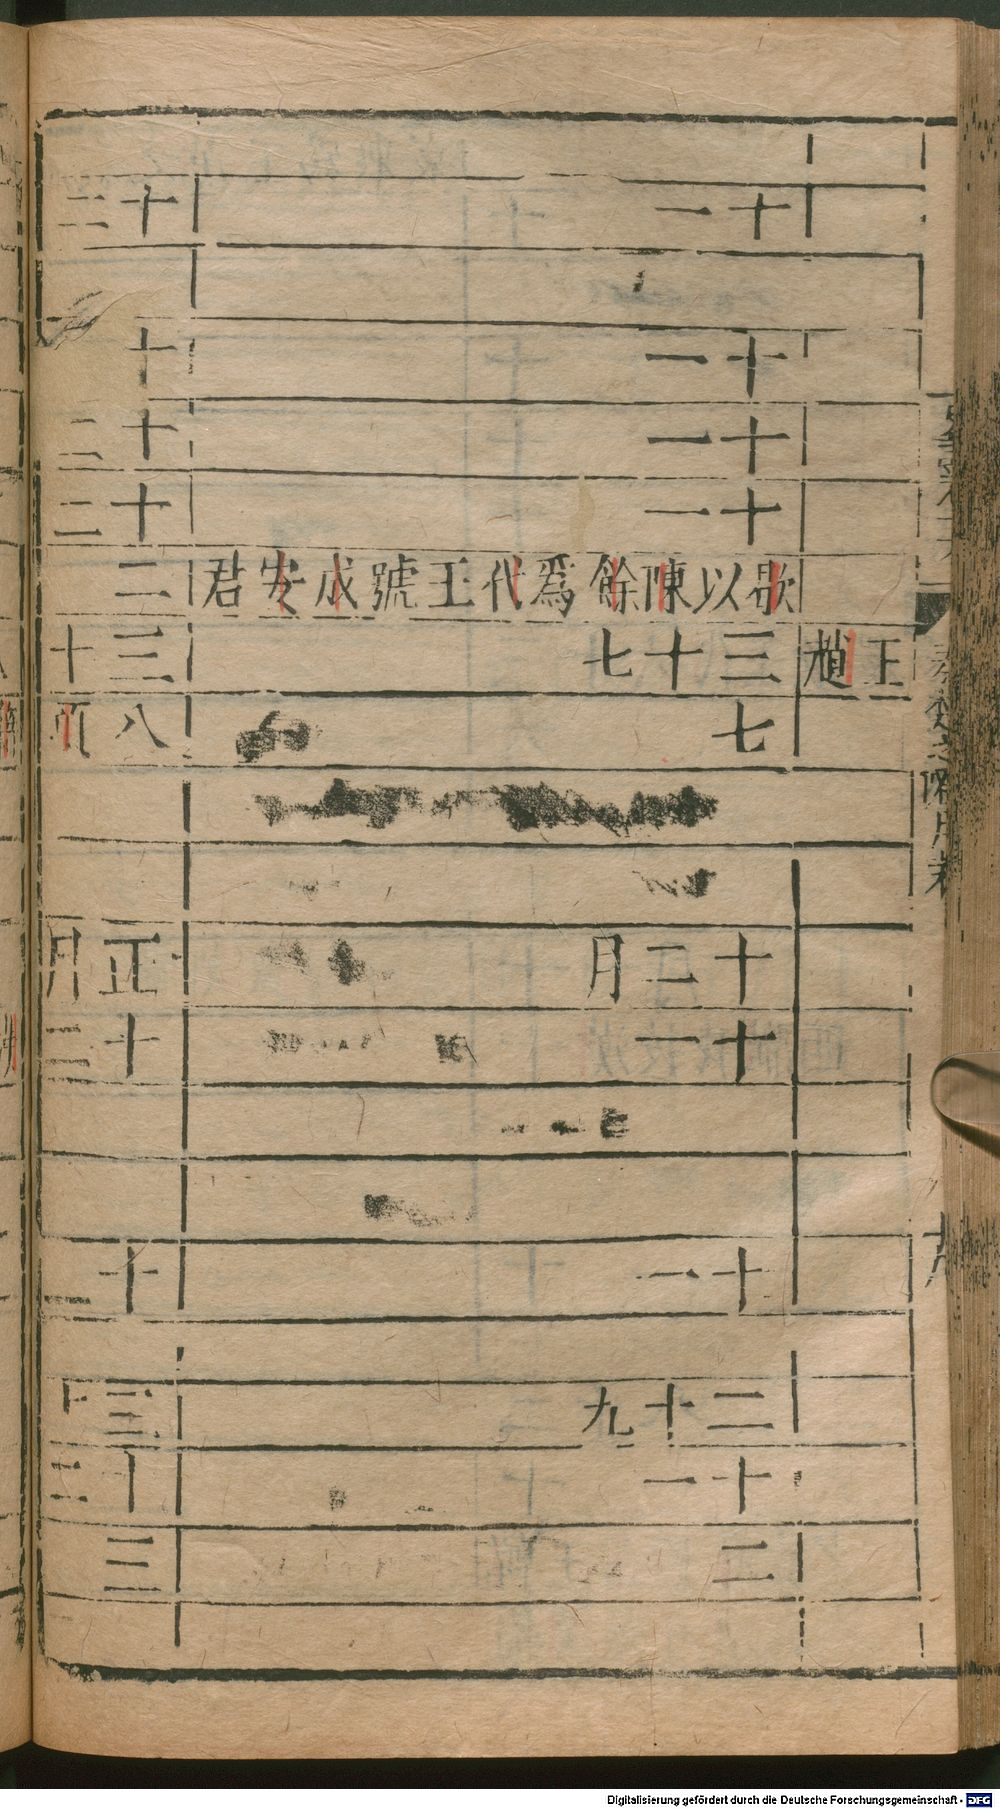 十一 十二
十一 十
十一 十二
十一 十二
歇以陳餘爲代王號成安君 二
王趙 三十七 三十
七 八
十二月 正月
十一 十三
十一 十二
二十九 三十
十一 十二
二 三
秦楚之際月表
Digitalisierung gefördert durch die Deutsche Forschungsgemeinschaft - DFG